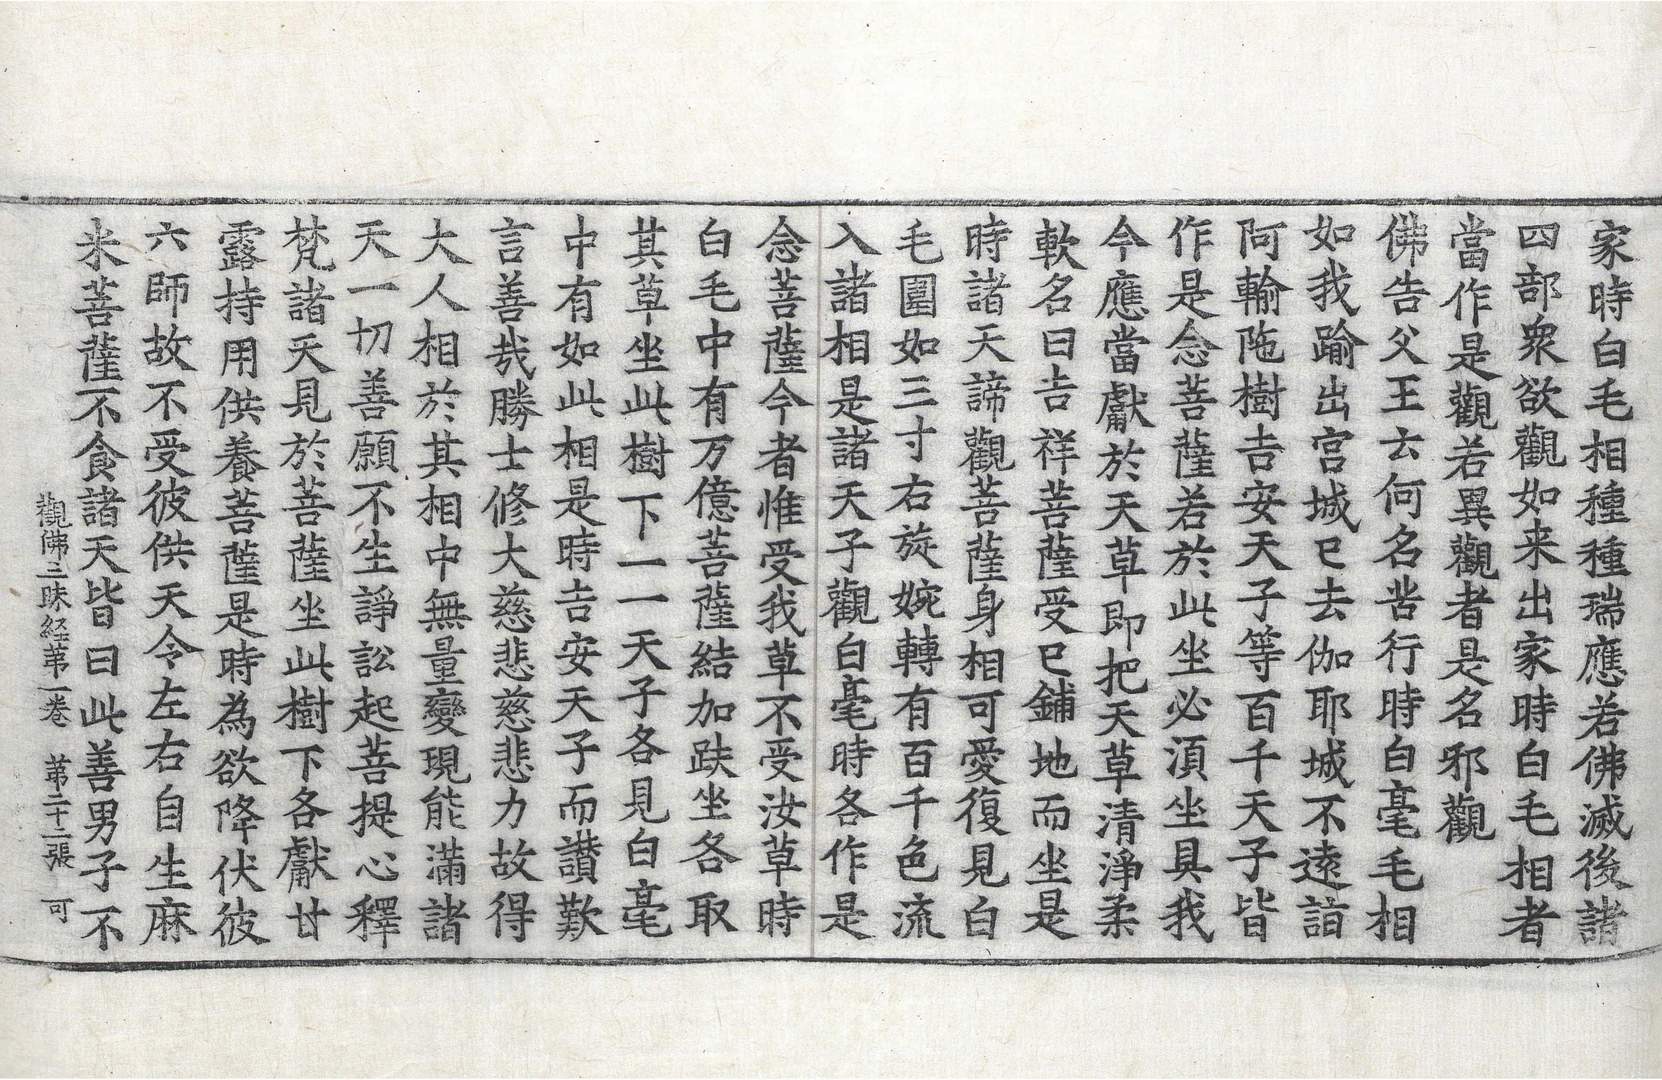 家時白毛相種種瑞應若佛滅後諸
四部衆欲觀如来出家時白毛相者
當作是觀若異觀者是名邪觀
佛告父王云何名苦行時白毫毛相
如我踰出宫城已去伽耶城不遠詣
阿輸陁樹吉安天子等百千天子皆
作是念菩薩若於此坐必湏坐具我
今應當獻於天草即把天草清淨柔
軟名曰吉祥菩薩受已鋪地而坐是
時諸天諦觀菩薩身相可愛復見白
毛圍如三寸右旋婉轉有百千色流
入諸相是諸天子觀白毫時各作是
念菩薩今者惟受我草不受汝草時
白毛中有万億菩薩結加趺坐各取
其草坐此樹下一一天子各見白毫
中有如此相是時吉安天子而讃歎
言善哉勝士修大慈悲慈悲力故得
大人相於其相中無量變現能滿諸
天一切善願不生諍訟起菩提心釋
梵諸天見於菩薩坐此樹下各獻甘
露持用供養菩薩是時為欲降伏彼
六師故不受彼供天令左右自生麻
米菩薩不食諸天皆曰此善男子不
觀佛三昧経苐一卷　苐二十二張　可